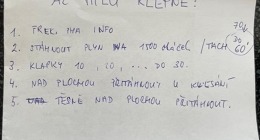 AŽ MILU KLEPNE!
1. FREK. IHA INFO
2. STÁHNOUT PLYN NA 1500 otáček / TACH.
3. KLAPKY 10, 20, ... DO 30.
4. NAD PLOCHOU PŘITÁHNOUT K KLESÁNÍ
5. TĚSNĚ NAD PLOCHOU PŘITÁHNOUT.